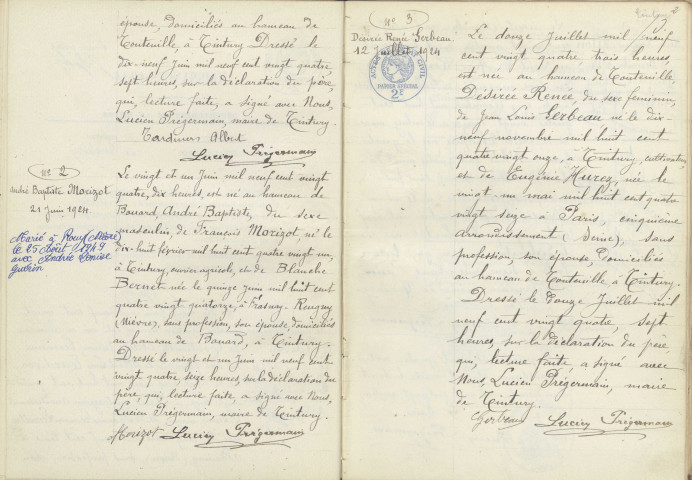 épouse, domiciliés au hameau de
Touteuille, à Tintury. Dressé le
dix-neuf Juin mil neuf cent vingt quatre
sept heures, sur la déclaration du père,
qui, lecture faite, a signé avec Nous,
Lucien Prégermain, maire de Tintury.
Albert
Lucien Prégermain
N° 2
André Baptiste Morizot
21 Juin 1924
Marié à
le 25 Août 1949
avec Andrée Denise
Guérin
Le vingt et un Juin mil neuf cent vingt
quatre, dix heures, est né au hameau de
Bouard, André Baptiste, du sexe
masculin, de François Morizot, né le
dix-huit février mil huit cent quatre vingt un,
à Tintury, ouvrier agricole, et de Blanche
Bernet née le quinze Juin mil huit cent
quatre vingt quatorze, à Frasnay-Reugny
(Nièvre), sans profession, son épouse, domiciliés
au hameau de Bouard, à Tintury.
Dressé le vingt et un Juin mil neuf cent
vingt quatre, seize heures, sur la déclaration du
père, qui, lecture faite, a signé avec Nous,
Lucien Prégermain, maire de Tintury.
Morizot Lucien Prégermain
2
N° 3
Désirée Renée Gerbeau
12 Juillet 1924
PAPIER SPECIAL
2F
Le douze Juillet mil neuf
cent vingt quatre, trois heures,
est née au hameau de Touteuille,
Désirée Renée, du sexe féminin,
de Jean Louis Gerbeau né le dix-
neuf novembre mil huit cent
quatre vingt onze, à Tintury, cultivateur,
et de Eugénie Hurez, née le
vingt-un mai mil huit cent quatre
vingt seize à Paris, cinquième
arrondissement (Seine), sans
profession, son épouse, domiciliés
au hameau de Touteuille, à Tintury.
Dressé le douze Juillet mil
neuf cent vingt quatre, sept
heures, sur la déclaration du père,
qui, lecture faite, a signé avec
Nous, Lucien Prégermain, maire
de Tintury.
Gerbeau Lucien Prégermain